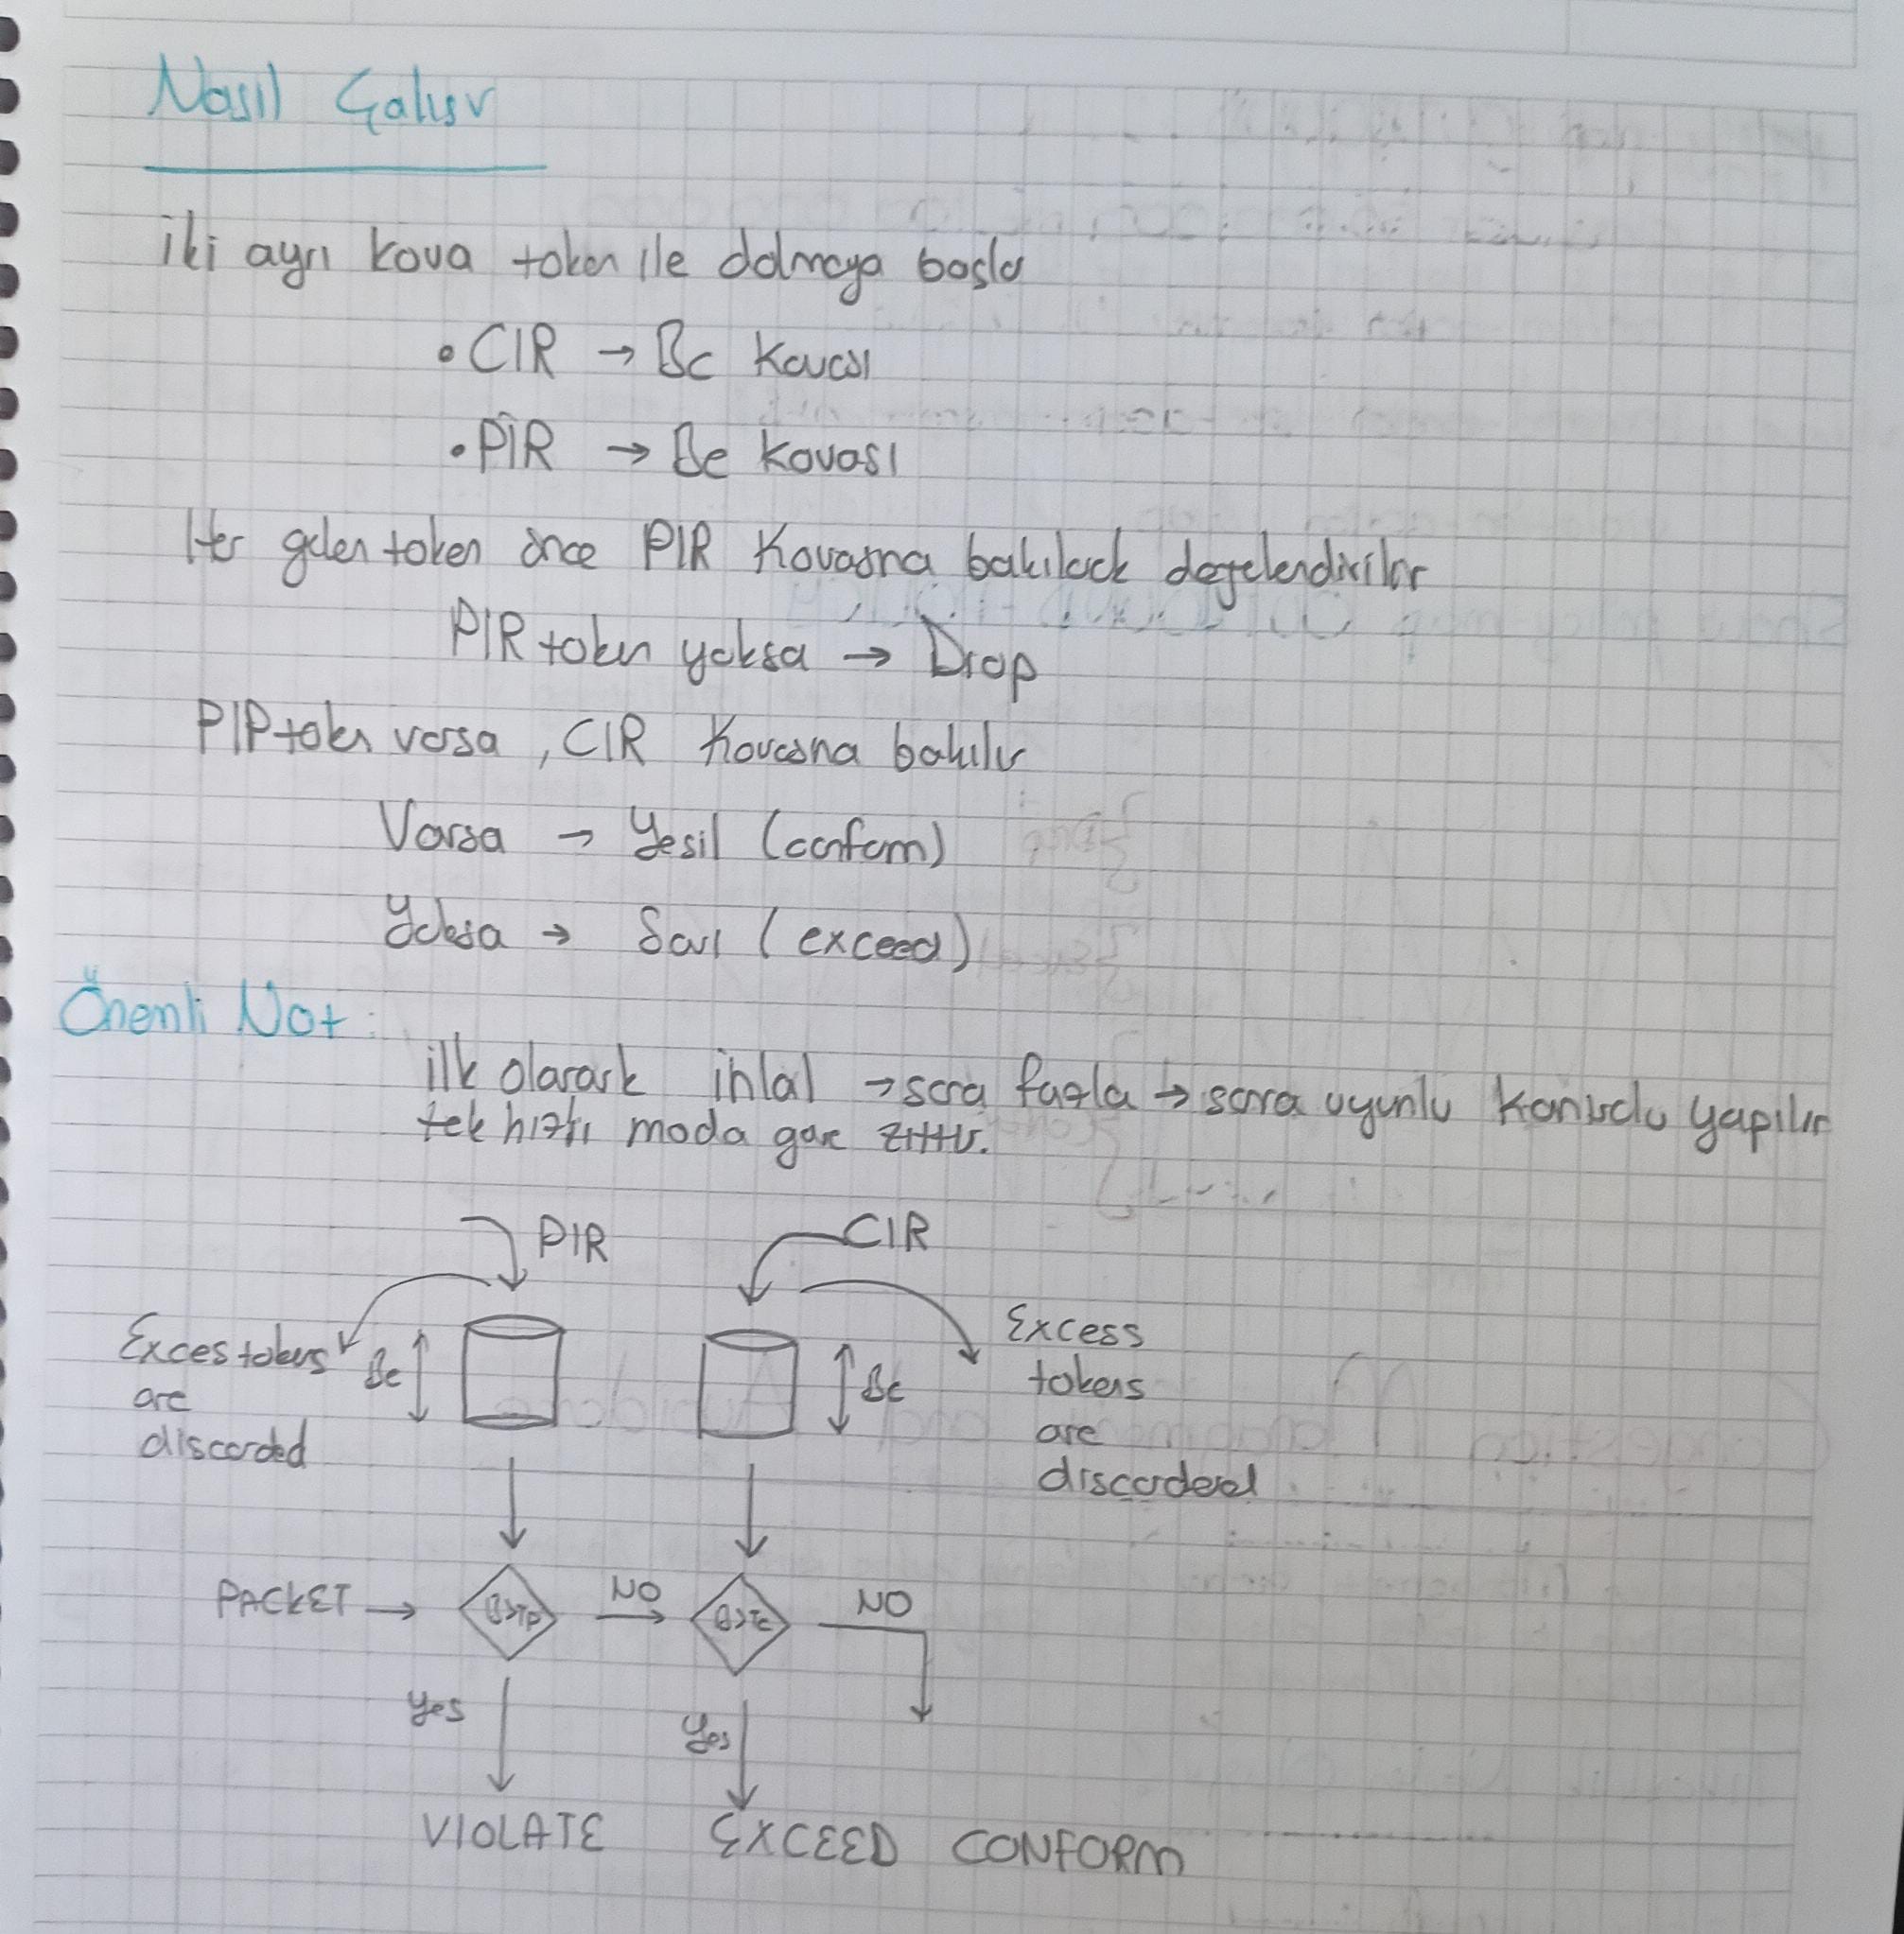 Nasıl Çalışır
iki ayrı kova token ile dolmaya başlar
• CIR → Bc Kovası
• PIR → Be Kovası
Her gelen token önce PIR Kovasına bakılarak değerlendirilir
PIR token yoksa → Drop
PIP token varsa , CIR Kovasına bakılır
Varsa → Yesil (conform)
Yoksa → Sarı (exceed)
Önemli Not :
ilk olarark ihlal → sora fazla → sora uyunlu kontrolu yapılır
tek hızlı moda göre zıttır.
PIR CIR
Exces tokens
are
discarded
Be
Bc
Excess
tokens
are
discardeed
PACKET → B>Tp NO B>Tc NO
Yes Yes
VIOLATE EXCEED CONFORM